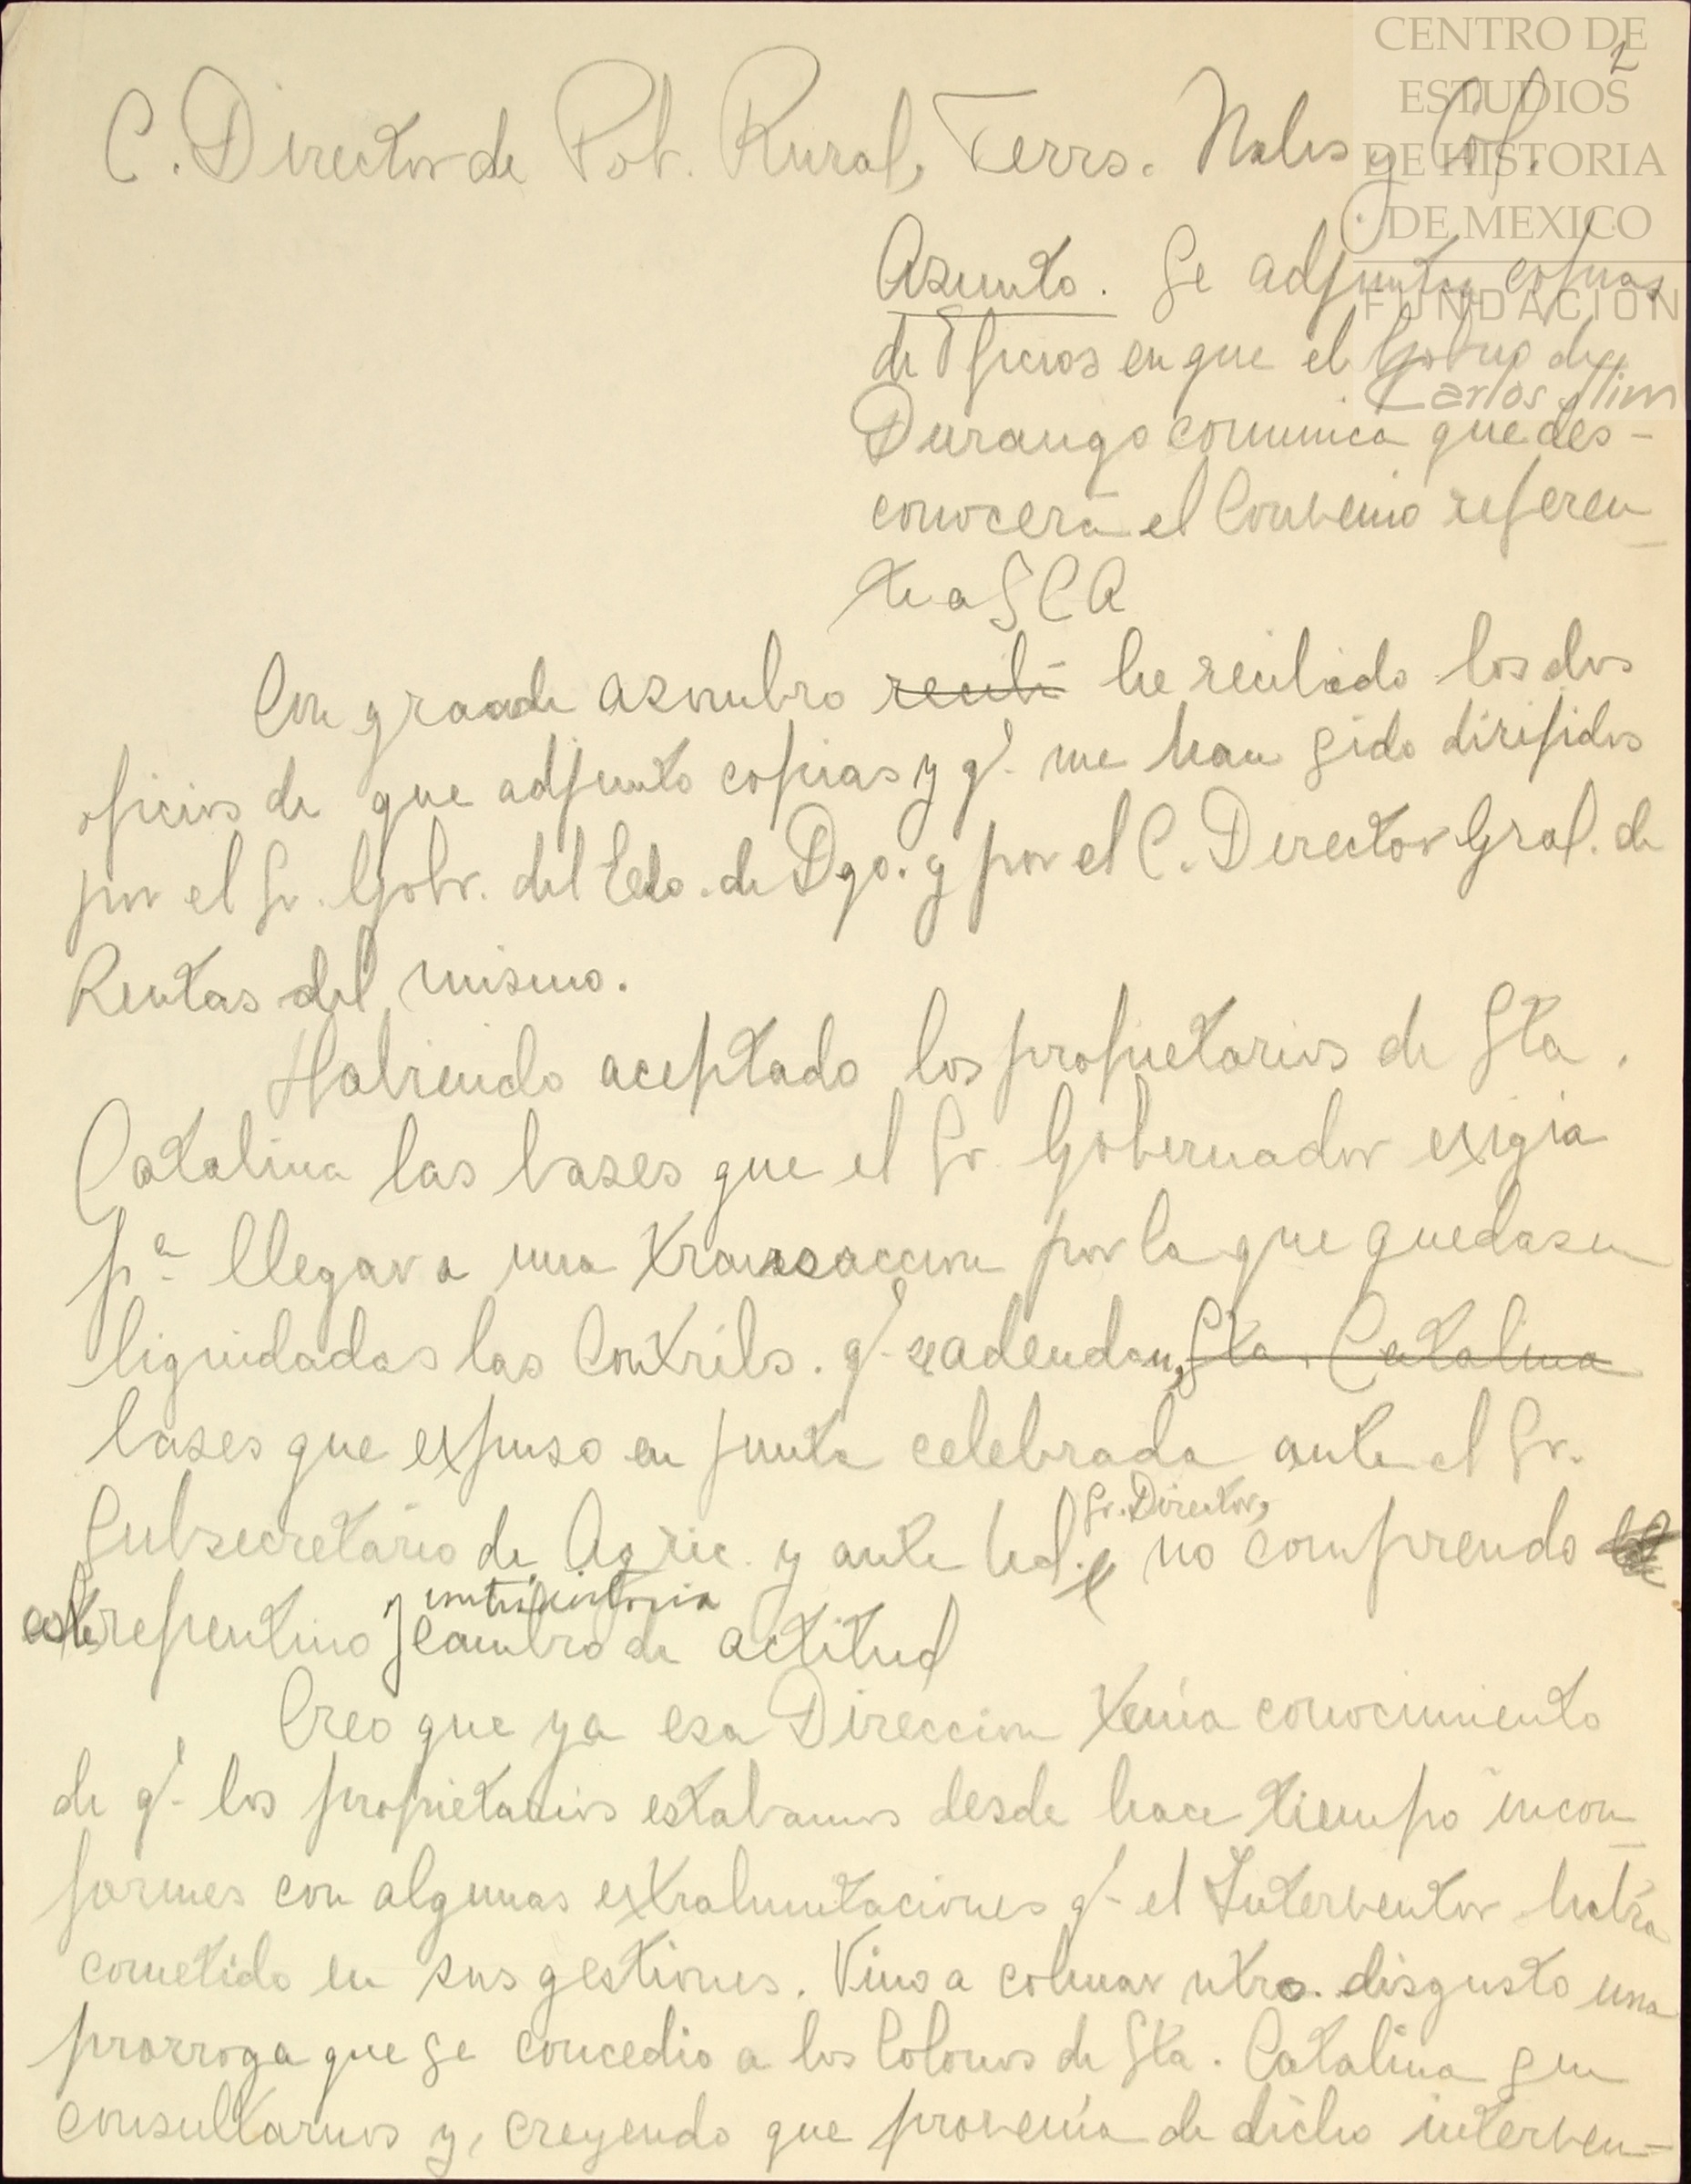 CENTRO DE
ESTUDIOS
DE HISTORIA
DE MEXICO
FUNDACIÓN
Carlos Slim
2
C. Director de Pob. Rural, Terrs. Nales y Col.
Asunto. Se adjuntan copias
de Oficios en que el Gobno de
Durango comunica que des-
conocerá el Convenio referen-
te a SCA
Con grande asombro recibí he recibido los dos
oficios de que adjunto copias y q'. me han sido dirifidos
por el Sr. Gobr. del Edo. de Dgo. y por el C. Director Gral. de
Rentas del mismo.
Habiendo aceptado los propietarios de Sta.
Catalina las bases que el Sr. Gobernador exigia
pa. llegar a una transaccion por la que quedasen
liquidadas las Contribs. q'. se adeudan, Sta. Catalina
bases que expuso en junta celebrada ante el Sr.
Subsecretario de Agric. y ante Ud. Sr. Director, no comprendo
este repentino y contradictorio cambio de actitud
Creo que ya esa Direccion tenía conocimiento
de q'. los propietarios estabamos desde hace tiempo incon-
formes con algunas extralimitaciones q'. el Interventor había
cometido en sus gestiones. Vino a colmar ntro. disgusto una
prorroga que se concedio a los Colonos de Sta. Catalina sin
consultarnos y, creyendo que provenía de dicho interven-